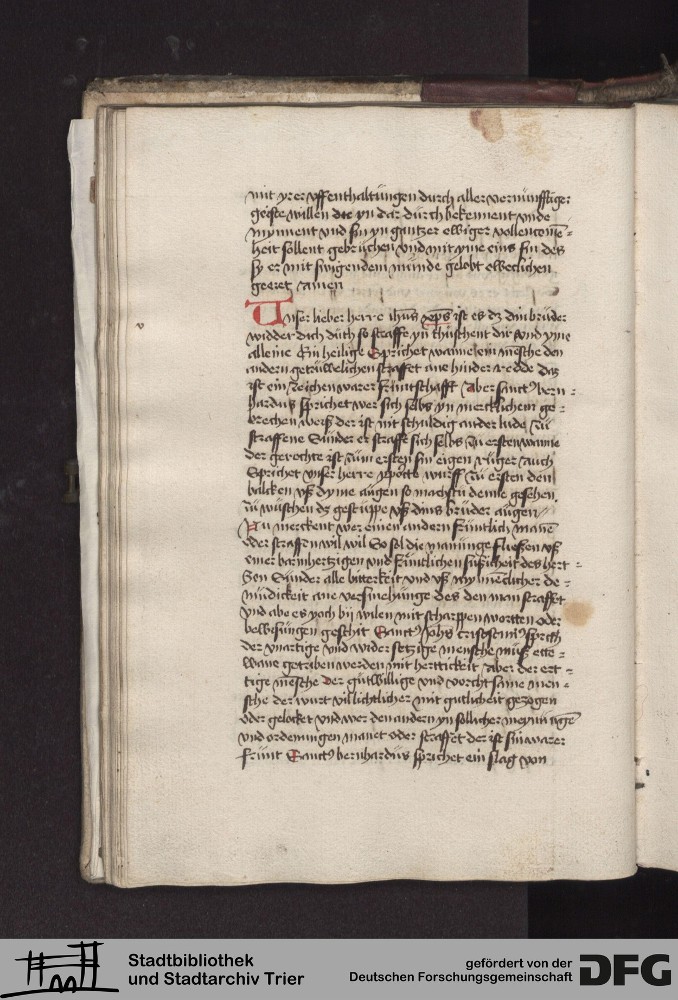 mit yrer vffenthaltüngen dürch aller vernünfftiger
geiste willen die yn dar dürch bekennent vnde
mynnent vnd sin yn gantzer ewiger vollencome-
heit sollent gebrüchen vnd mit yme eins sin des
sy er mit swigendem münde gelobt eweclichen
geeret amen
Unser lieber herre ihus xps ist es dz din brüder
widder dich düth so straffe yn tzüschent dir vnd yme
alleine Ein heilige Sprichet wanne ein mesche den
andern getrüwelichen straffet ane hinder redde daz
ist ein zeichen warer früntschafft Aber sanct9 bern-
hardus sprichet wer sich selbs yn mercklichem ge-
brechen weyß der ist nit schuldig ander lude zü
straffene Sünder er straffe sich selbs zü ersten wanne
der gerechte ist züm ersten sin eigen rüger auch
Sprichet vnser herre wurff zü ersten den
balcken vß dyme aügen so machtu denne gesehen
zü wüschen dz gestuppe vß dins brüder aügen
Nü merckent wer einen andern früntlich mane
oder straffen wil wil So sol die manünge fließen vß
einer barmhertzigen vnd früntlichen süßicheit des hert-
zen Sünder alle bitterkeit vnd vß mynneclicher de-
mudickeit ane versmehünge des den man straffet
vnd abe es yoch bij wilen mit scharppen wortten oder
bewisüngen geschit Sanct9 johs crisostim9 sprich
der vnartige vnd wider setzige mensche müß ette-
wane getriben werden mit herttickeit Aber der ert-
tige mesche der gütwillige vnd vorchtsame men-
sche der wirt vil lichtlicher mit gutlicheit gezogen
oder gelocket vnd wer den andern yn sollicher meynunge
vnd ordenüngen manet oder straffet der ist sin warer
frünt Sanct9 bernhardüs sprichet ein slag von
Stadtbibliothek
und Stadtarchiv Trier
gefördert von der
Deutschen Forschungsgemeinschaft
DFG